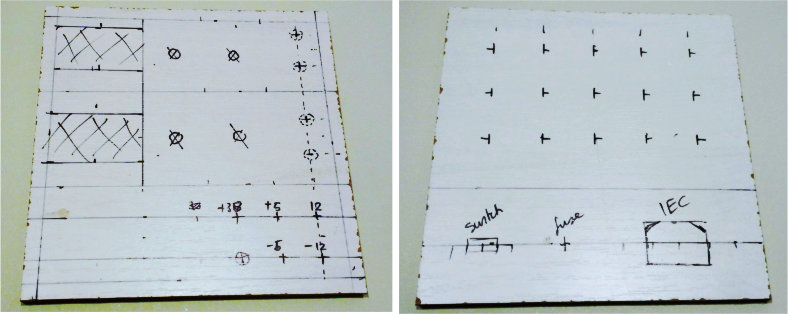 +5 12
-5 -12
switch fuse IEC